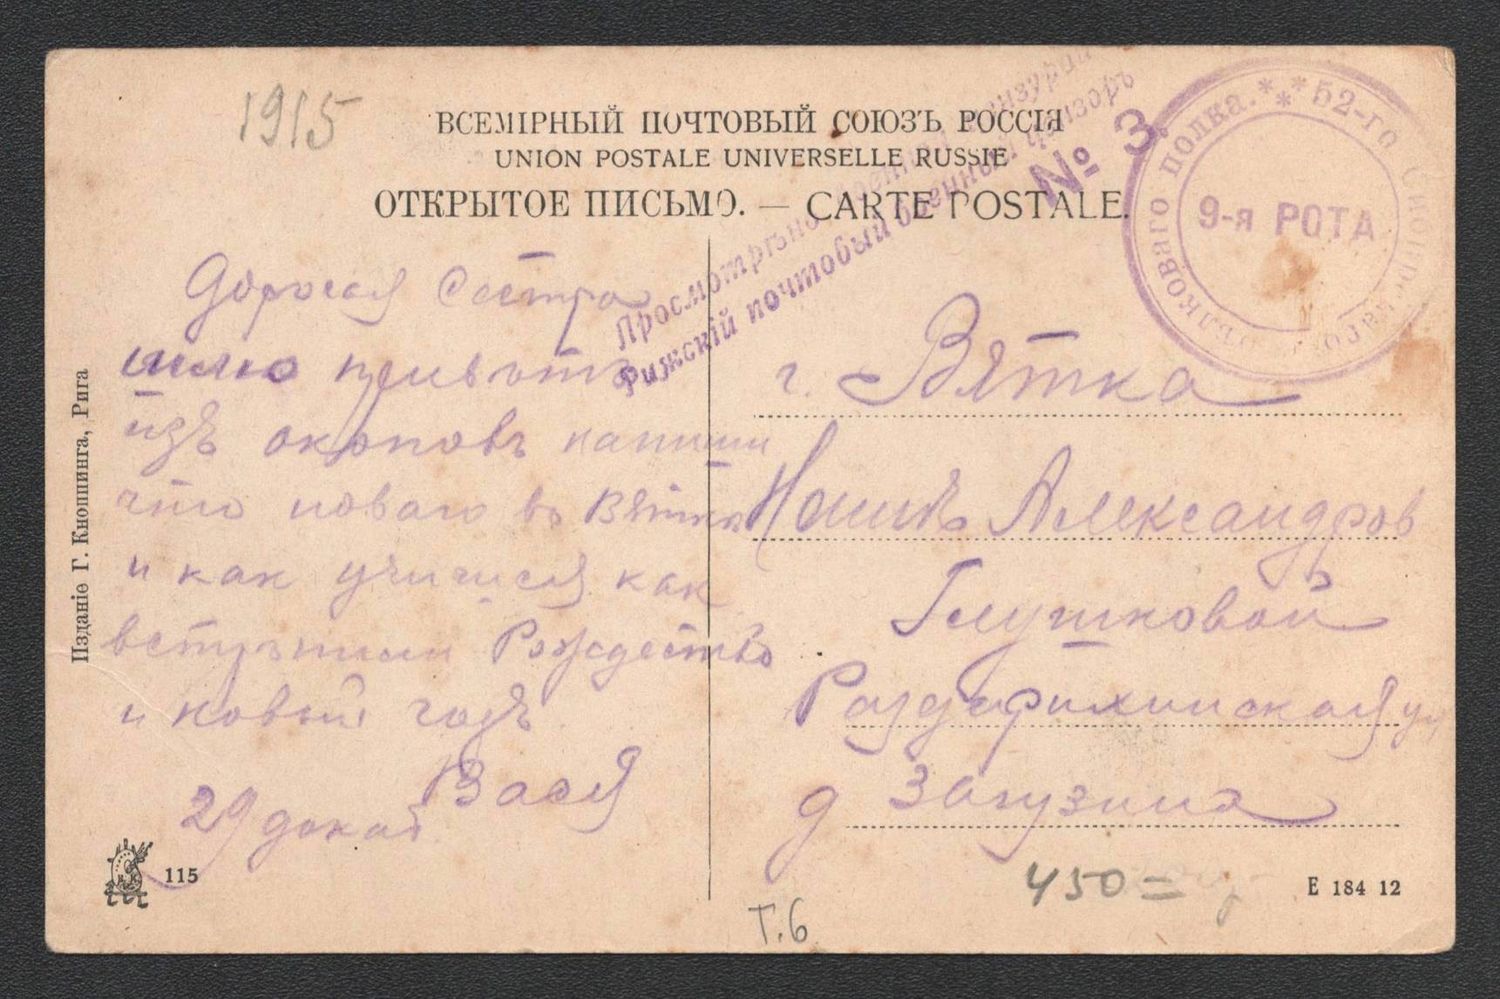 1915
ВСЕМІРНЫЙ ПОЧТОВЫЙ СОЮЗЪ РОССІЯ
UNION POSTALE UNIVERSELLE RUSSIE
ОТКРЫТОЕ ПИСЬМО. — CARTE POSTALE.
Просмотрѣно военной цензурой
Рижскій почтовый военный цензоръ
№ 3.
52-го Сибирскаго Стрѣлковаго полка.
9-я РОТА
Дорогая Сестра
шлю приветъ
изъ окоповъ напиши
что новаго въ Вятке
и как учишся как
встретили Рождество
и новый годъ
Вася
29 декаб
г. Вятка
Александров
Глушковой
Раздерихинская ул
д Загузина
Изданіе Г. Кноппинга, Рига
115
450=
Т.6
E 184 12